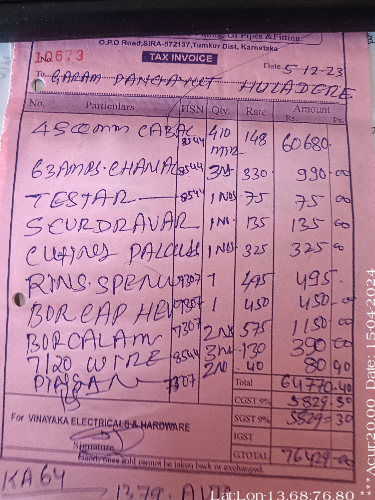 Of Pipes & Fitting.
O.P.D Road, SIRA-572137, Tumkur Dist, Karnataka
10673 TAX INVOICE
Date 5-12-23
To GARAM PANCHAYET HULADERE
No. Particulars HSN Qty. Rate Amount
Rs. Ps.
4SCOmm CABAL 8544 410 mtr 148 60680.
63AMPS. CHANAL 8544 3N 330 990-00
TESTAR 8544 1 NOS 75 75 00
SCURDRAVAR 1N 135 135 00
1 NOS 325 325 00
RING. SPENU 7307 1 495 495.
BORCAP HEV 7307 1 450 450-00
BORCALAM 7307 2N 575 1150-00
7/20 WIRE 8544 3N 130 390 00
7307 2N 40 80 00
Total 64770.40
CGST 9% 5829.30
SGST 9% 5829-30
IGST
GTOTAL 76429-00
For VINAYAKA ELECTRICALS & HARDWARE
Signature
Goods once sold cannot be taken back or exchanged.
KA64
1379.
Lat:Lon:13.68:76.80
*** Acur:20.00 Date: 15-04-2024